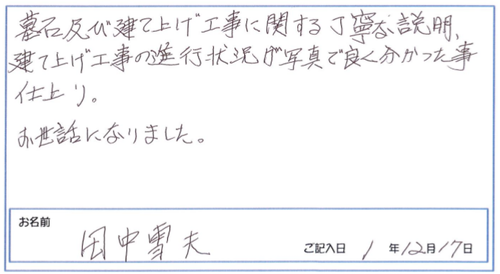 墓石及び建て上げ工事に関する丁寧な説明、
建て上げ工事の進行状況が写真で良く分かった事
仕上り。
お世話になりました。
お名前
田中雪夫
ご記入日 1年12月17日